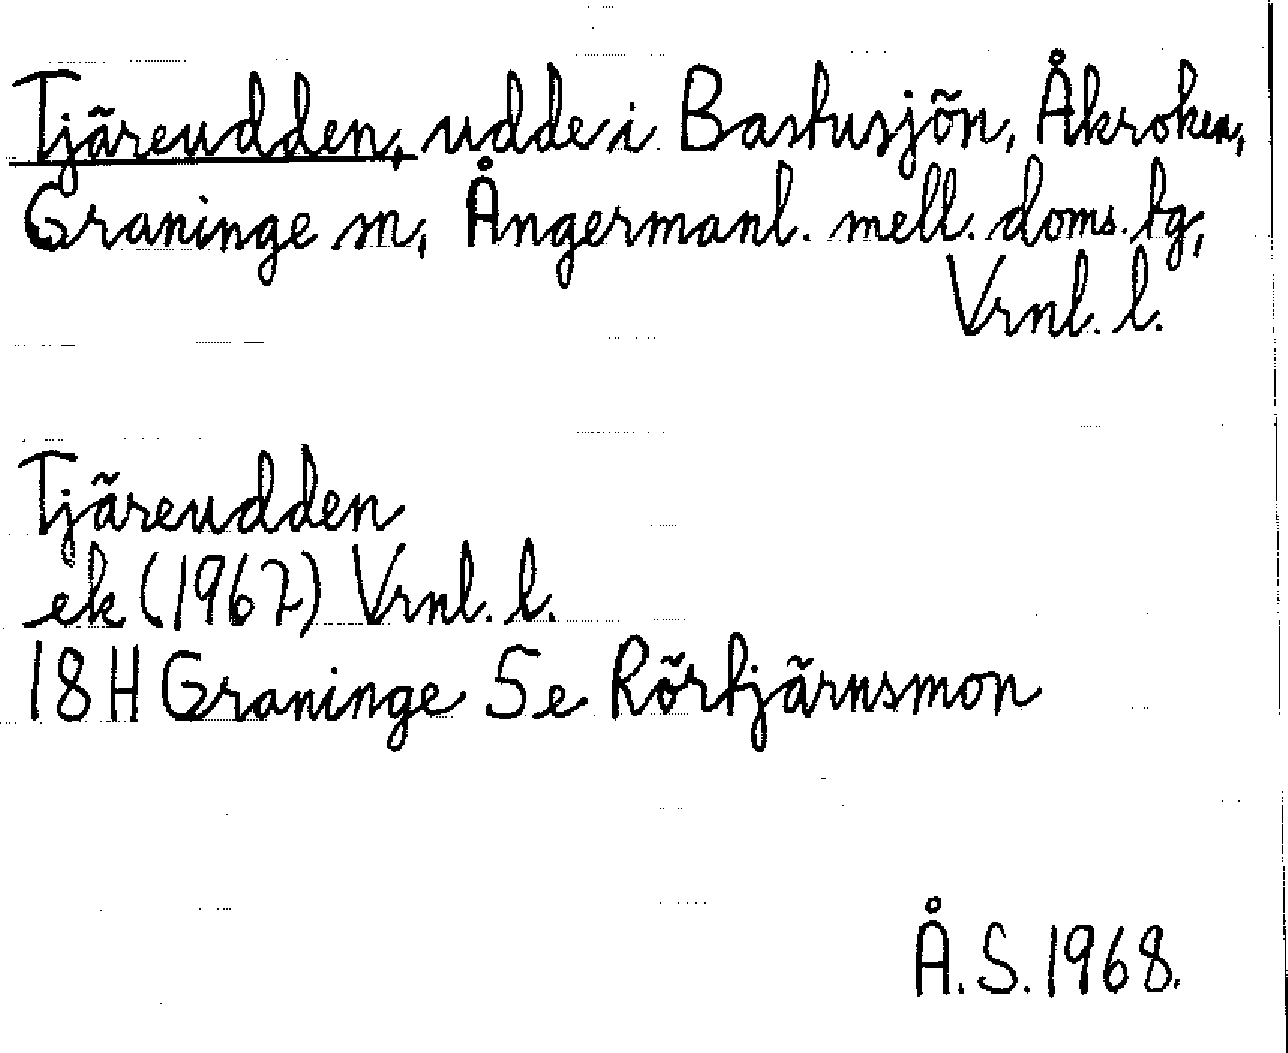 Tjäreudden, udde i Bastusjön, Åkroken,
Graninge sn, Ångermanl. mell. doms. tg,
Vrnl. l.
Tjäreudden
ek (1967) Vrnl. l.
18H Graninge 5e Rörtjärnsmon
Å.S. 1968.